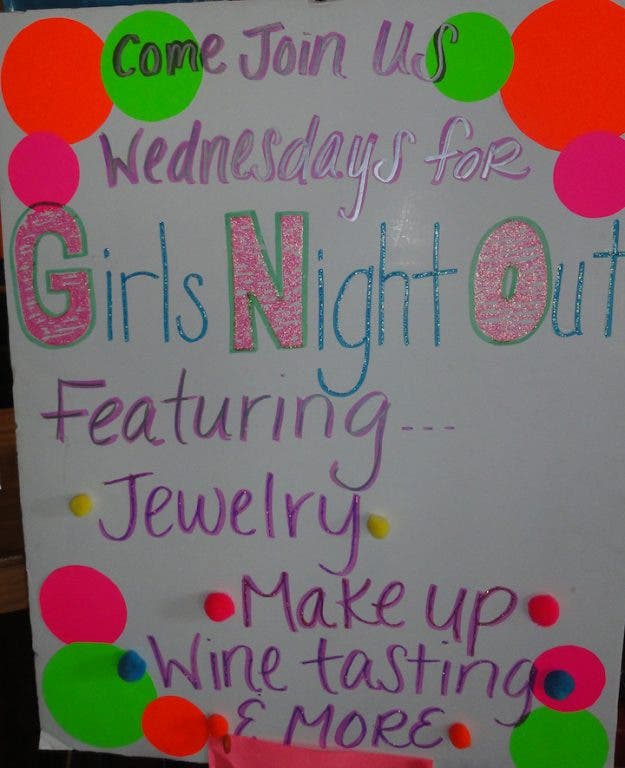 Come Join US
Wednesdays for
Girls Night Out
Featuring...
Jewelry
Make up
Wine tasting
& MORE